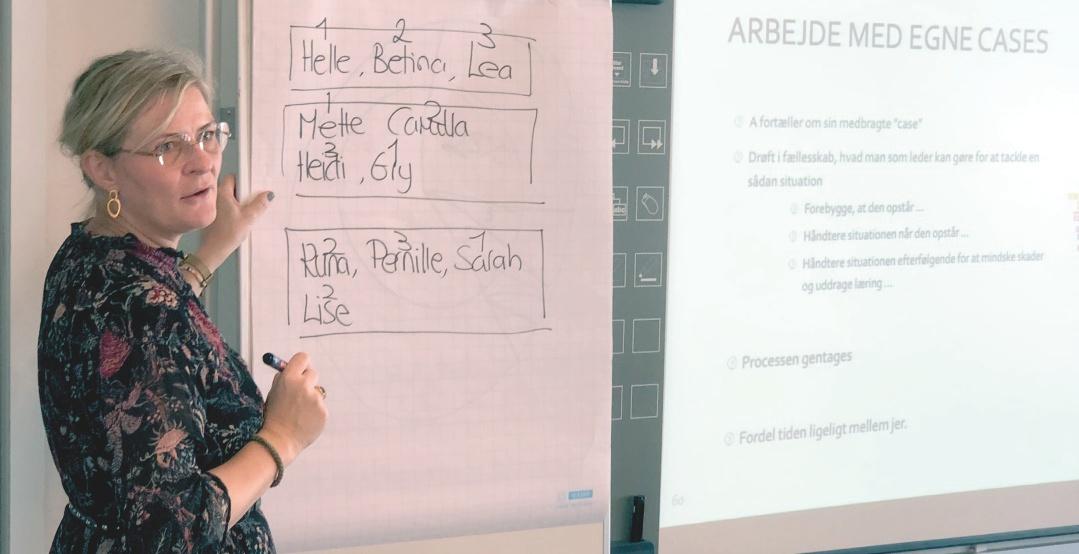 1 2 3
Helle, Betina, Lea
1 2
Mette Camilla
3 1
Heidi, Gry
2 3 1
Runa, Pernille, Sarah
2
Lise
ARBEJDE MED EGNE CASES
A fortæller om sin medbragte "case"
Drøft i fællesskab, hvad man som leder kan gøre for at tackle en
sådan situation
Forebygge, at den opstår ...
Håndtere situationen når den opstår ...
Håndtere situationen efterfølgende for at mindske skader
og uddrage læring ...
Processen gentages
Fordel tiden ligeligt mellem jer.
60